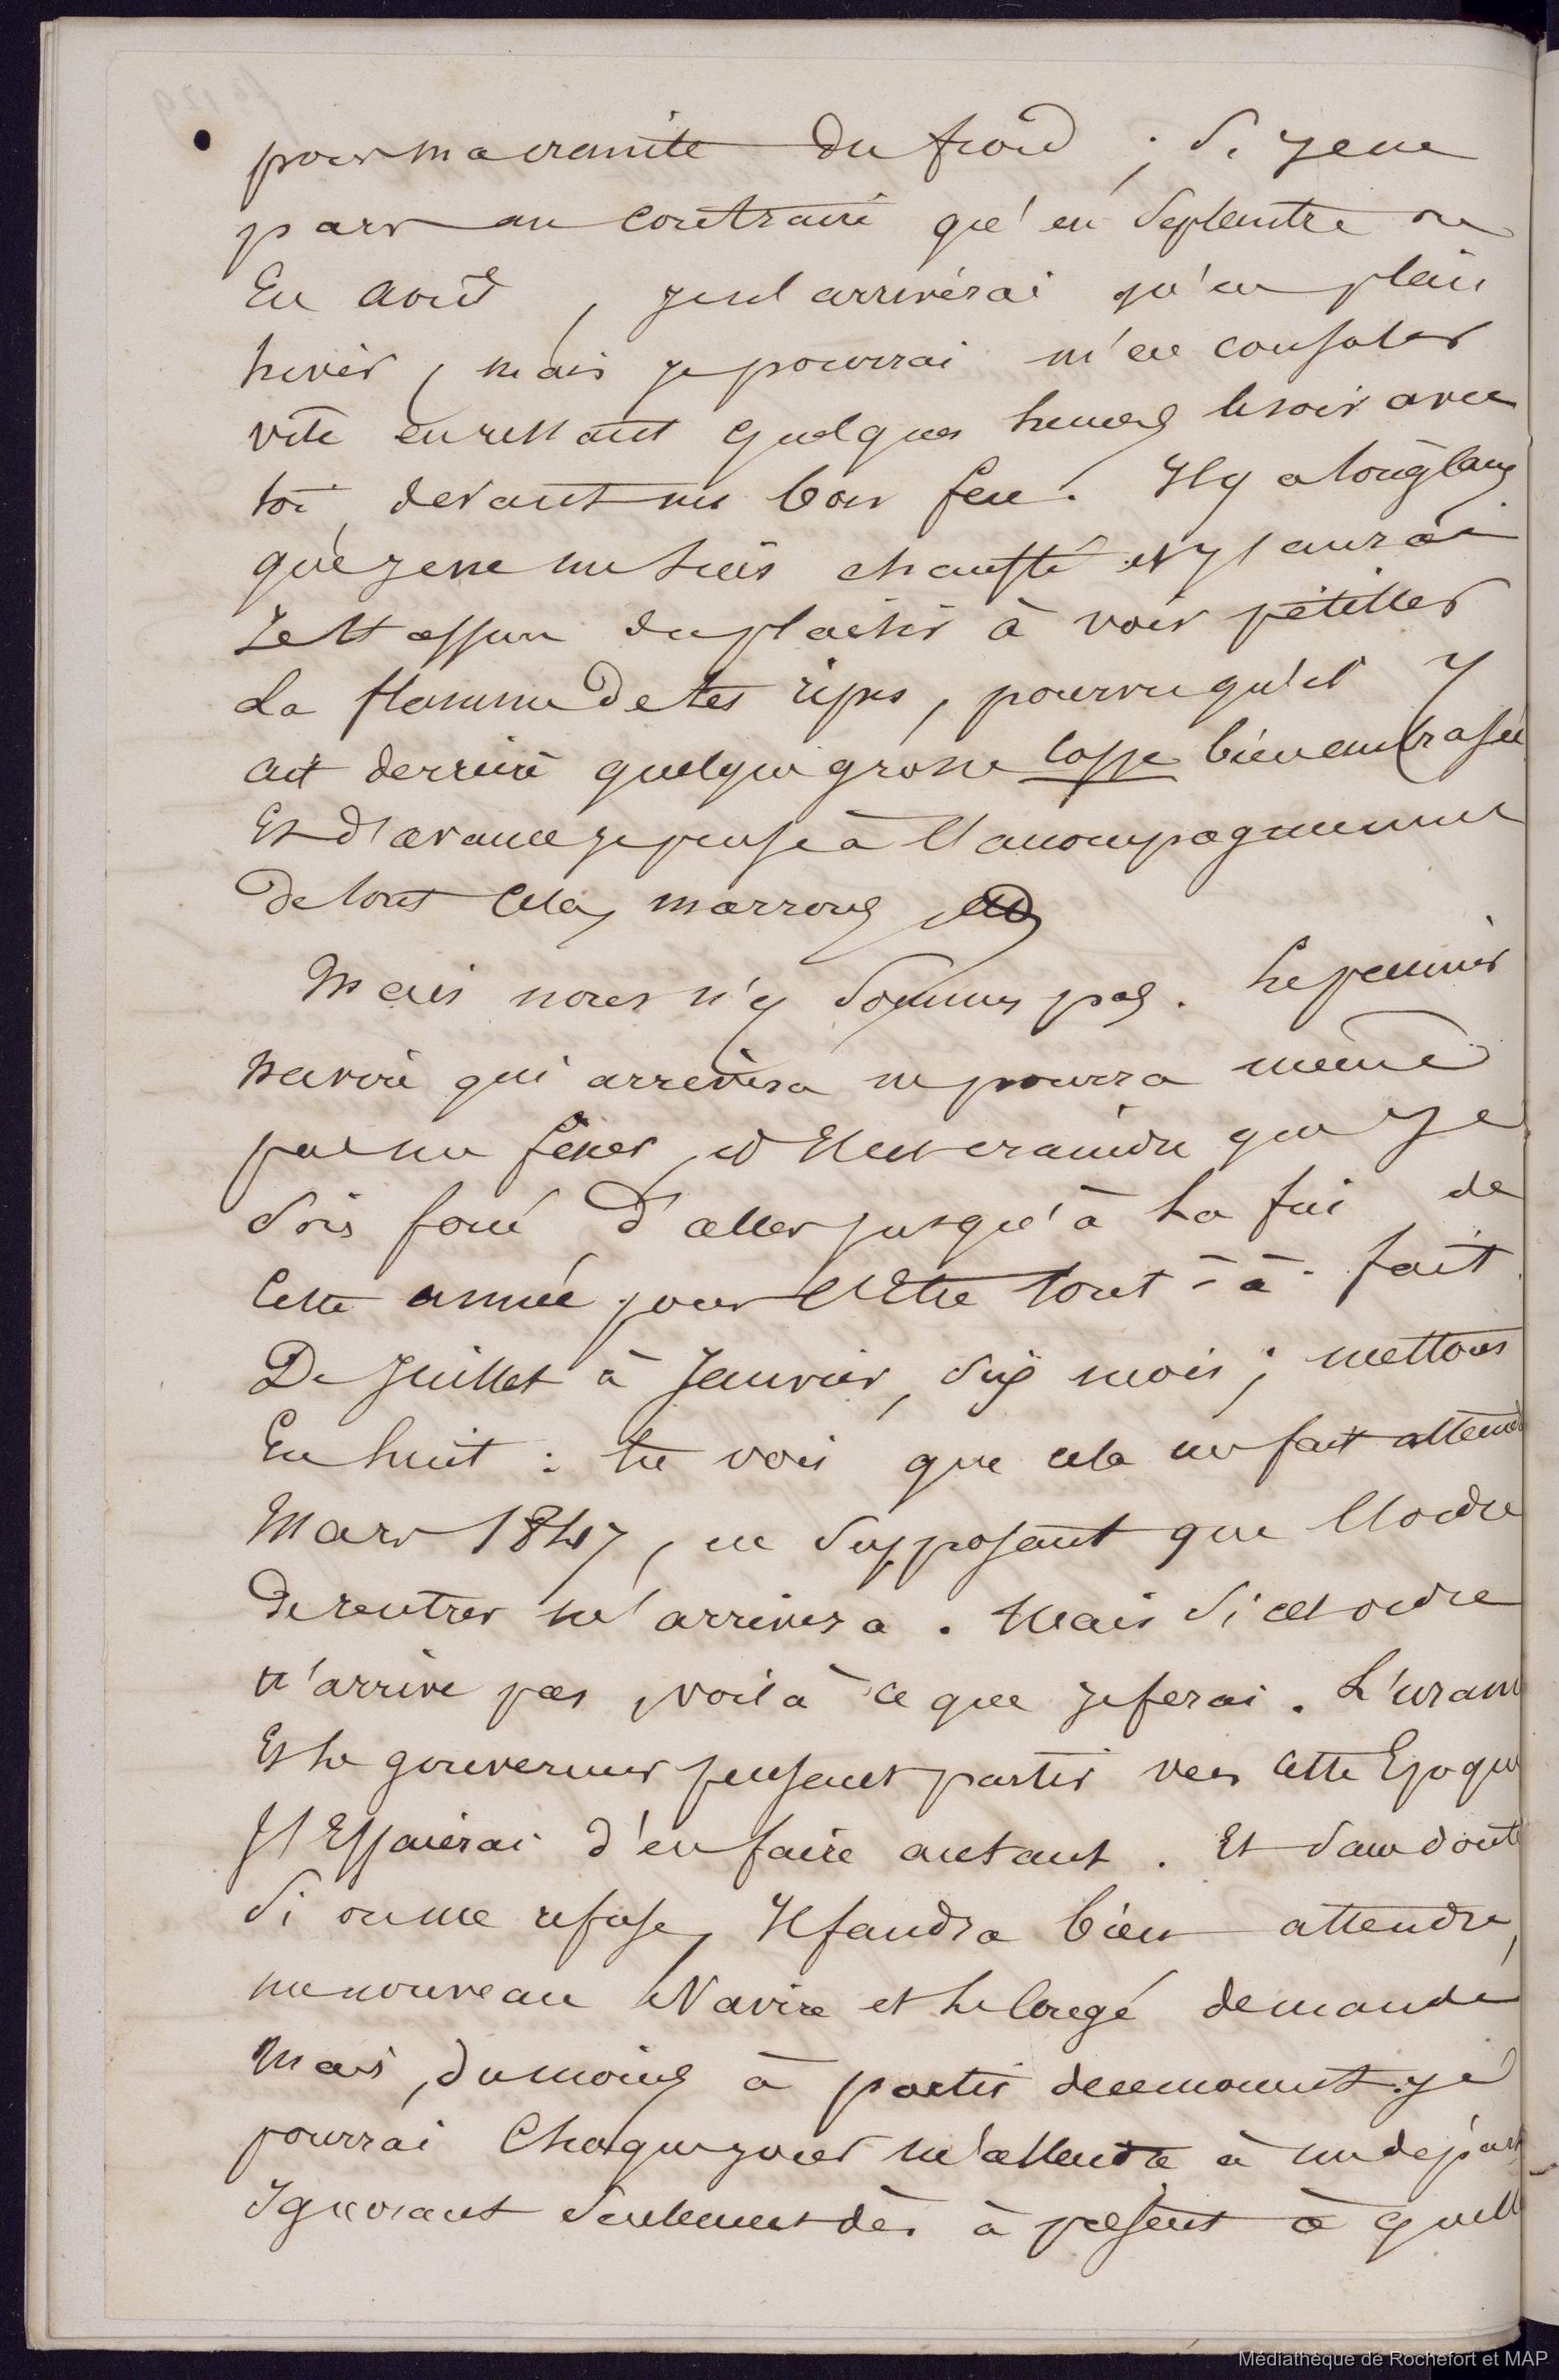 pour ma crainte du froid ; si je ne
pars au contraire qu'en Septembre ou
En Août, je n'arriverai qu'en plein
hiver, mais je pourrai m'en consoler
vite en restant quelques heures le soir avec
toi, devant un bon feu. Il y a longtemps
que je ne me suis chauffé et j'aurai
je t'assure du plaisir à voir pétiller
La flamme de tes ripes, pourvu qu'il y
ait derrière quelque grosse cosse bien embrasée
Et d'avance je pense à l'accompagnement
De tout cela, marrons
Mais nous n'y sommes pas. Le premier
navire qui arrivera ne pourra même
pas me fixer, et Il est à craindre que je
sois forcé d'aller jusqu'à la fin de
Cette année pour l'Etre tout-à-fait.
De Juillet à Janvier, six mois ; mettons
En huit : tu vois que cela me fait attendre
Mars 1847, en supposant que l'ordre
De rentrer m'arrivera. Mais si cet ordre
n'arrive pas, voilà ce que je ferai. L'uranie
Et le gouverneur pensent partir vers cette Epoque
J'Essaierai d'en faire autant. Et sans doute
Si on me refuse, Il faudra bien attendre,
un nouveau Navire et le congé demandé
Mais, du moins à partir de ce moment je
pourrai Chaque jour m'attendre à un départ
Ignorant seulement dès à présent à quelle
Médiathèque de Rochefort et MAP